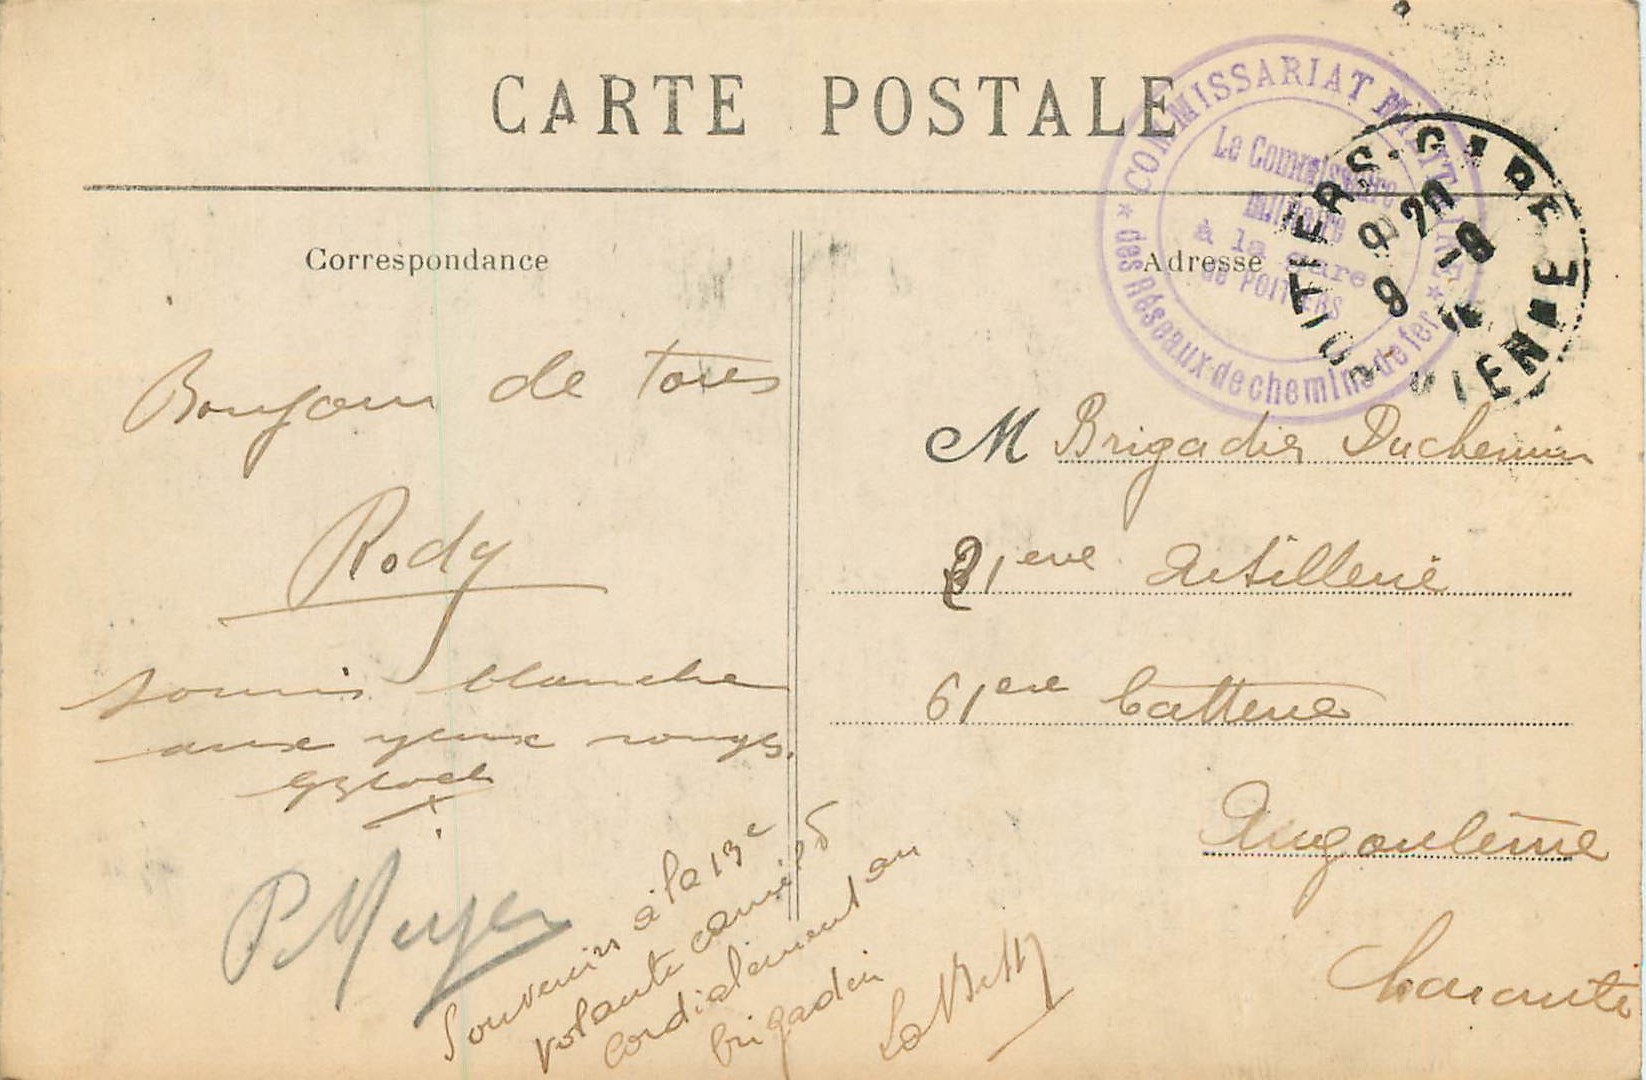 CARTE POSTALE
COMMISSARIAT MILITAIRE
★ des Réseaux de chemins de fer ★
Le Commissaire
militaire
à la gare
de POITIERS
POITIERS-GARE
VIENNE
Correspondance
Adresse
Bonjour de tous
Rody
souris blanche
aux yeux rouges
P. Meyer
Souvenirs à la 13e
volante
cordialement au
brigadier
M Brigadier Duchemin
21eme Artillerie
61eme batterie
Angoulême
Charente